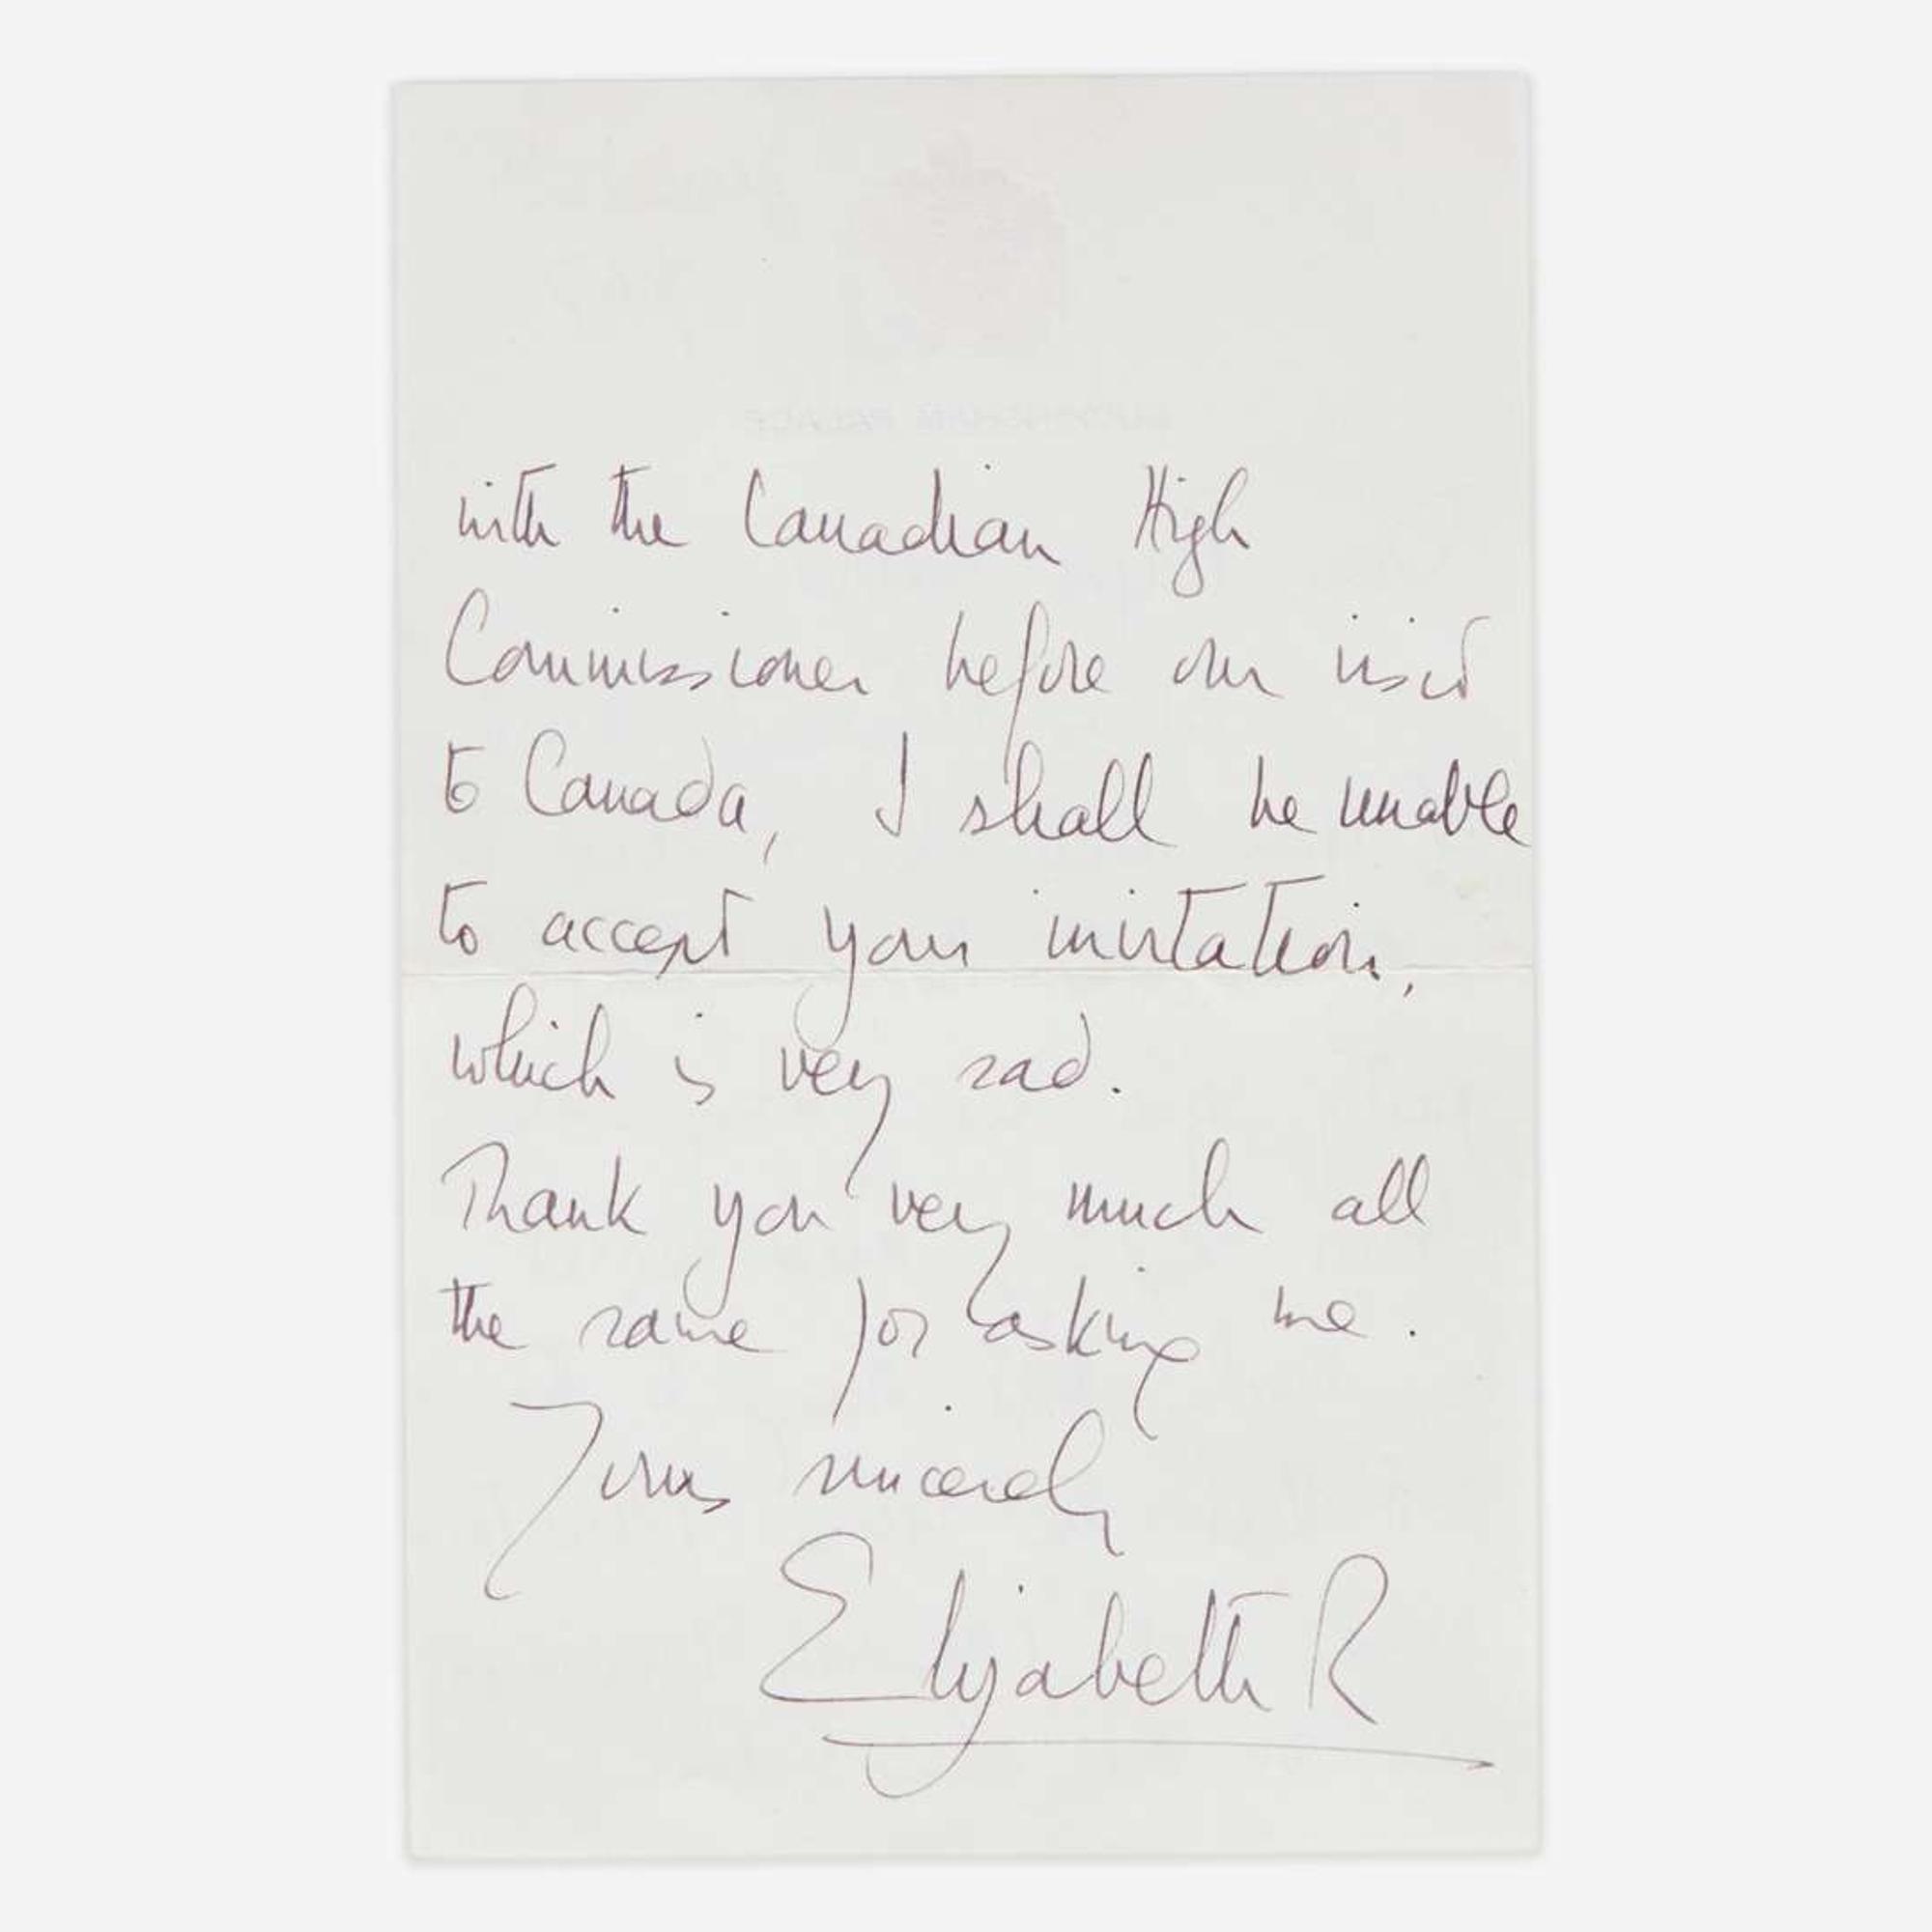 BUCKINGHAM PALACE
with the Canadian High
Commissioner before our visit
to Canada, I shall be unable
to accept your invitation,
which is very sad.
Thank you very much all
the same for asking me.
Yours sincerely
Elizabeth R